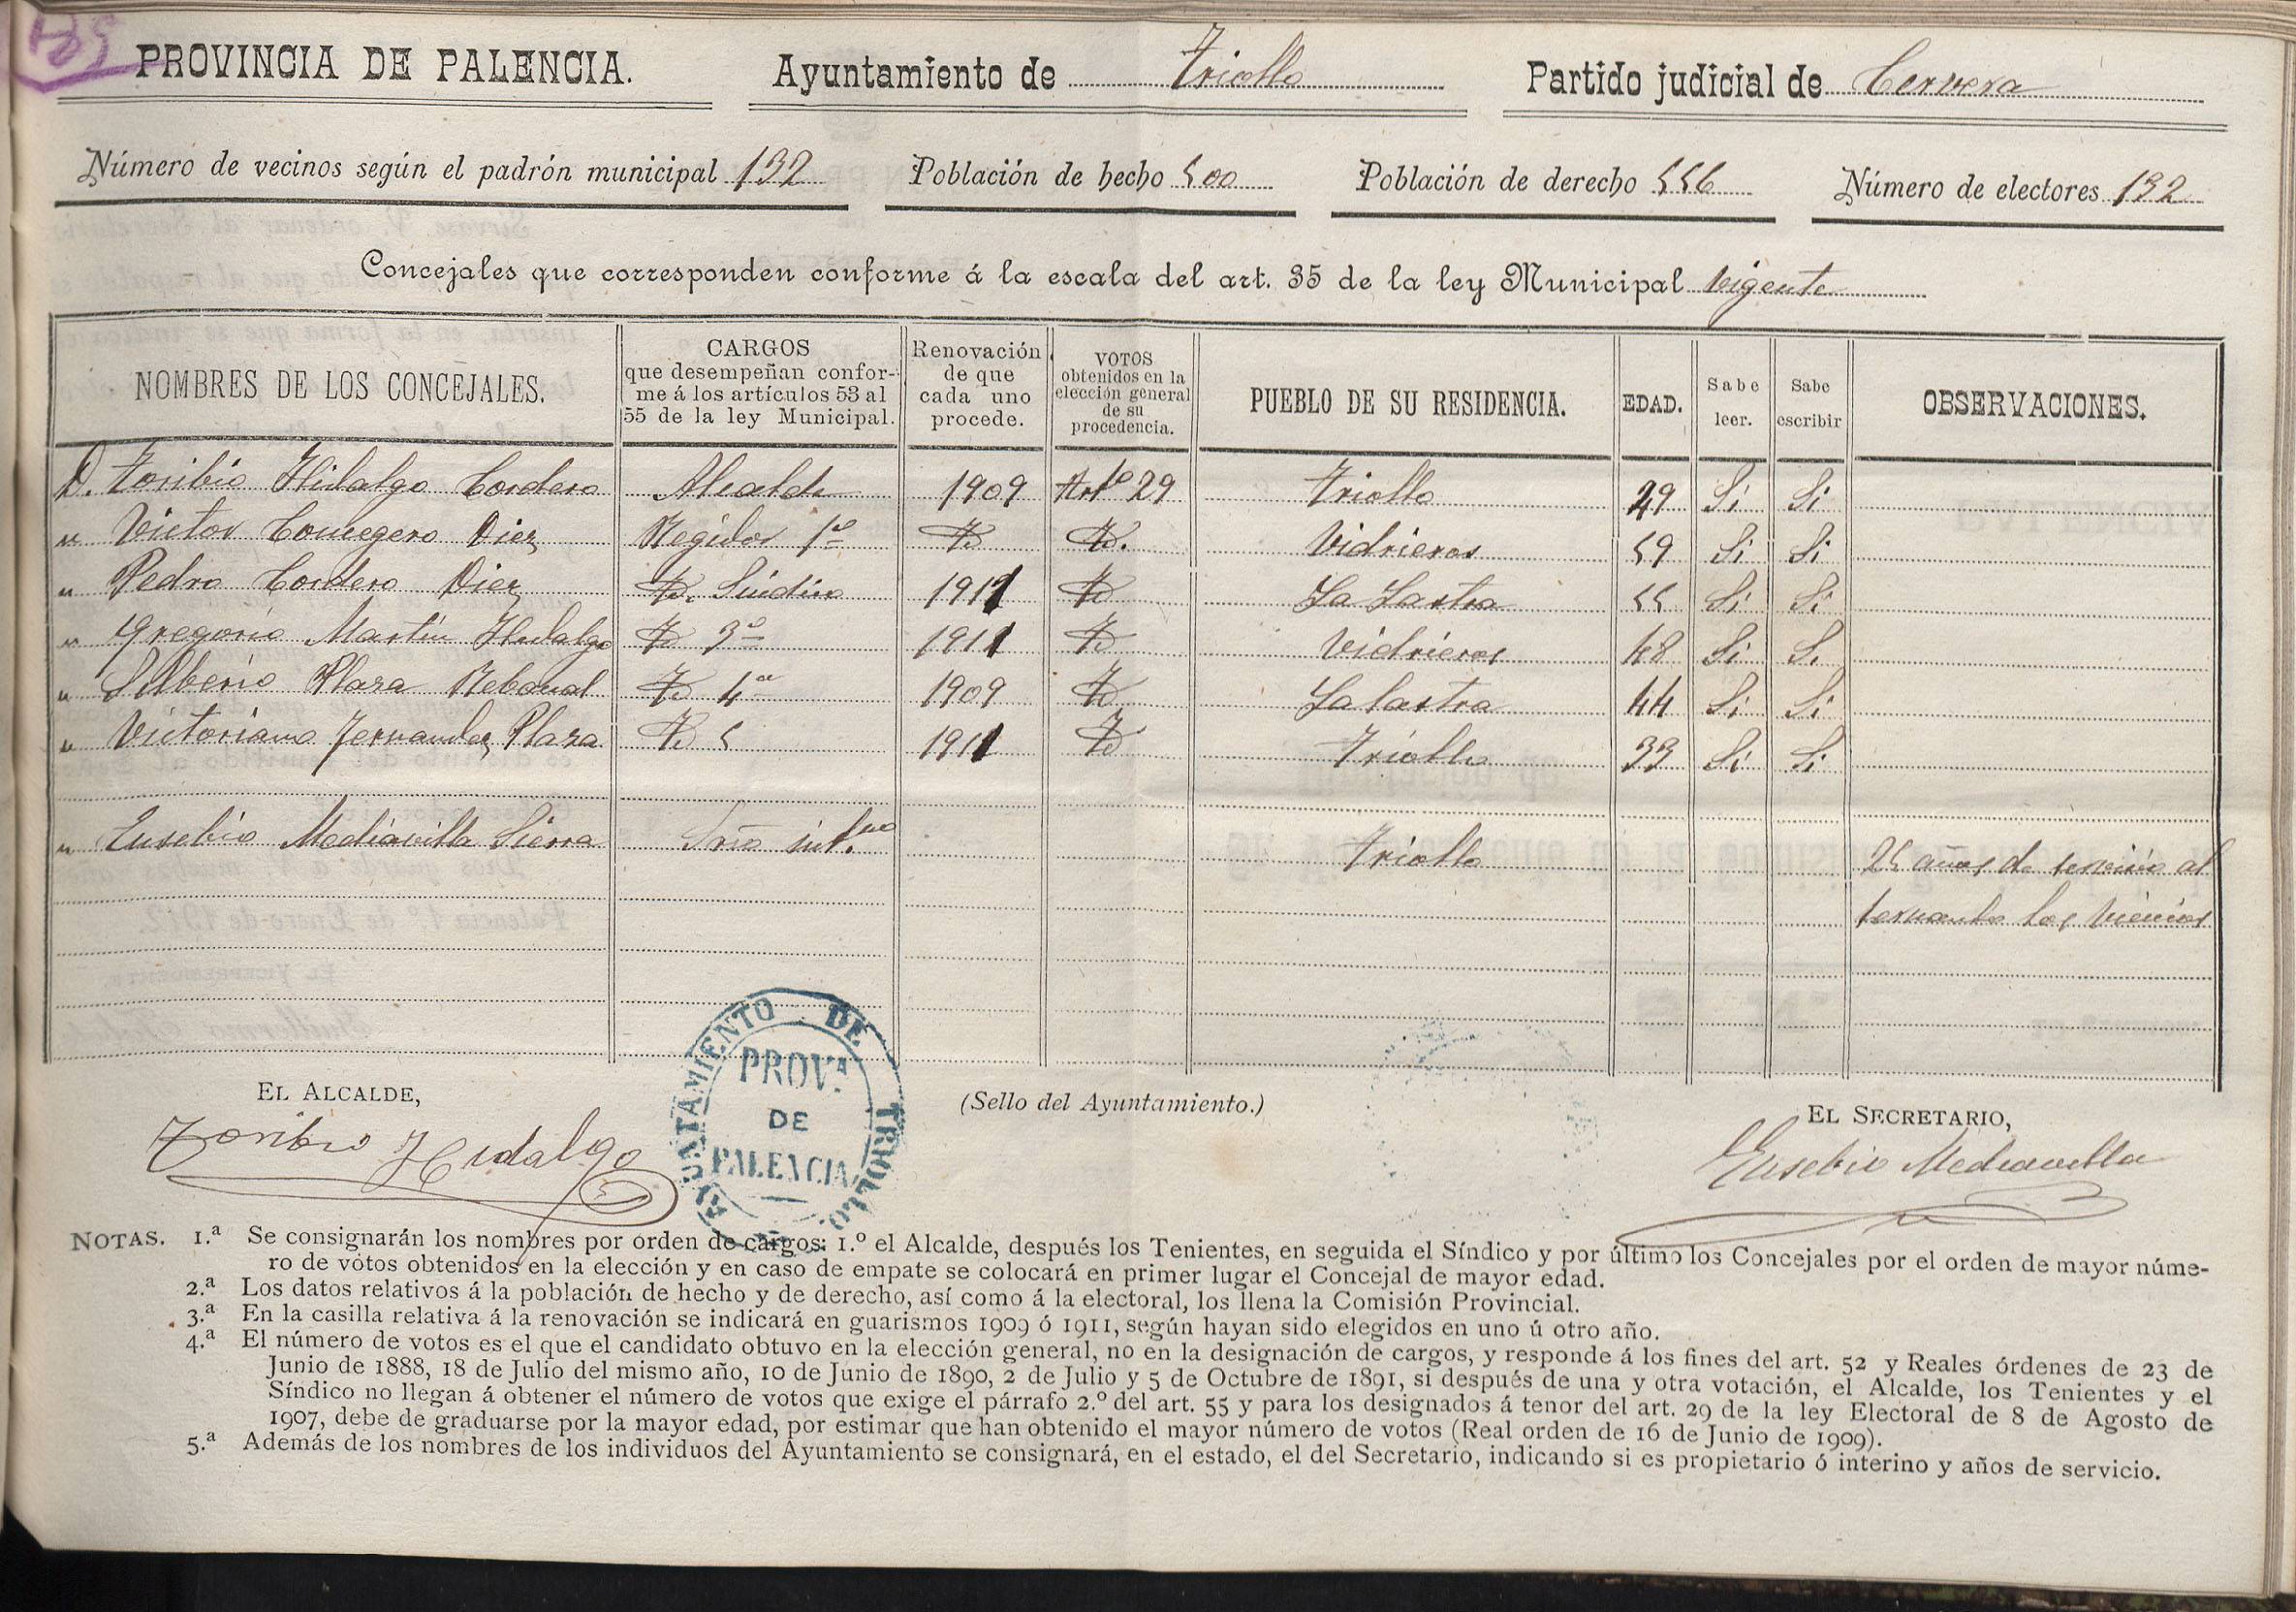 PROVINCIA DE PALENCIA. Ayuntamiento de Triollo Partido judicial de Cervera
Número de vecinos según el padrón municipal 132 Población de hecho 500 Población de derecho 556 Número de electores 132
Concejales que corresponden conforme á la escala del art. 35 de la ley Municipal vigente
NOMBRES DE LOS CONCEJALES. CARGOS que desempeñan confor- me á los artículos 53 al 55 de la ley Municipal. Renovación de que cada uno procede. VOTOS obtenidos en la elección general de su procedencia. PUEBLO DE SU RESIDENCIA. EDAD. Sabe leer. Sabe escribir OBSERVACIONES.
D. Toribio Hidalgo Cordero Alcalde 1909 Artº 29 Triollo 49 Si Si
" Victor Concegero Diez Regidor 1º Id Id. Vidrieros 59 Si Si
" Pedro Cordero Diez Id. Sindico 1911 Id La Lastra 55 Si Si
" Gregorio Martin Hidalgo Id 3º 1911 Id Vidrieros 48 Si Si
" Silberio Plaza Rebanal Id 4º 1909 Id La lastra 44 Si Si
" Victoriano Fernandez Plaza Id 5 1911 Id Triollo 33 Si Si
" Eusebio Mediavilla Sierra Srio int.no Triollo 25 años de servicio al
las
EL ALCALDE, (Sello del Ayuntamiento.) EL SECRETARIO,
Toribio Hidalgo Eusebio Mediavilla
AYUNTAMIENTO DE TRIOLLO
PROVª
DE
PALENCIA
NOTAS. 1.ª Se consignarán los nombres por orden de cargos: 1.º el Alcalde, después los Tenientes, en seguida el Síndico y por último los Concejales por el orden de mayor núme-
ro de votos obtenidos en la elección y en caso de empate se colocará en primer lugar el Concejal de mayor edad.
2.ª Los datos relativos á la población de hecho y de derecho, así como á la electoral, los llena la Comisión Provincial.
3.ª En la casilla relativa á la renovación se indicará en guarismos 1909 ó 1911, según hayan sido elegidos en uno ú otro año.
4.ª El número de votos es el que el candidato obtuvo en la elección general, no en la designación de cargos, y responde á los fines del art. 52 y Reales órdenes de 23 de
Junio de 1888, 18 de Julio del mismo año, 10 de Junio de 1890, 2 de Julio y 5 de Octubre de 1891, si después de una y otra votación, el Alcalde, los Tenientes y el
Síndico no llegan á obtener el número de votos que exige el párrafo 2.º del art. 55 y para los designados á tenor del art. 29 de la ley Electoral de 8 de Agosto de
1907, debe de graduarse por la mayor edad, por estimar que han obtenido el mayor número de votos (Real orden de 16 de Junio de 1909).
5.ª Además de los nombres de los individuos del Ayuntamiento se consignará, en el estado, el del Secretario, indicando si es propietario ó interino y años de servicio.